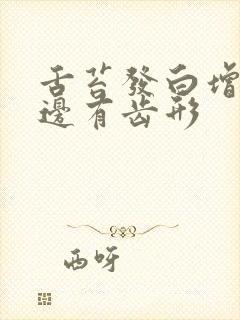 舌苔發白增
邊有齿形
西呀